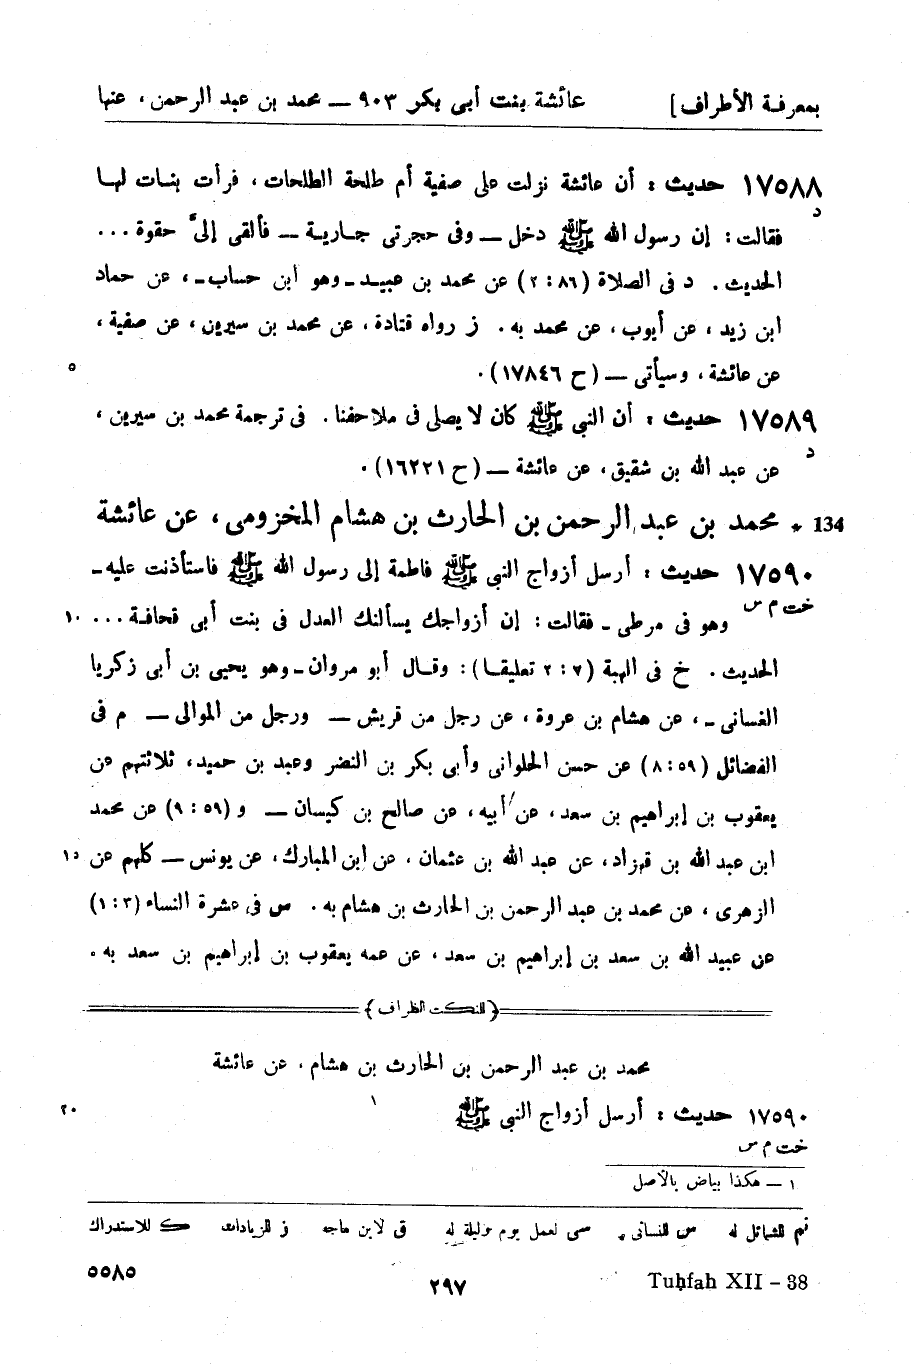 بمعرفة الأطراف] عائشة بنت أبى بكر ٩٠٣ — محمد بن عبد الرحمن، عنها
١٧٥٨٨ حديث : أن عائشة نزلت على صفية أم طلحة الطلحات، فرأت بنات لها
د
فقالت: إن رسول الله ﷺ دخل — وفى حجرتى جارية — فألقى إلىّ حقوة ...
الحديث. د فى الصلاة (٨٦ : ٢) عن محمد بن عبيد - وهو ابن حساب -، عن حماد
ابن زيد، عن أيوب، عن محمد به. ز رواه قتادة، عن محمد بن سيرين، عن صفية،
عن عائشة، وسيأتى — (ح ١٧٨٤٦). ٥
١٧٥٨٩ حديث : أن النبي ﷺ كان لا يصلى فى ملاحفنا. فى ترجمة محمد بن سيرين،
د
عن عبد الله بن شقيق، عن عائشة — (ح ١٦٢٢١).
134 * محمد بن عبد الرحمن بن الحارث بن هشام المخزومى، عن عائشة
١٧٥٩٠ حديث : أرسل أزواج النبي ﷺ فاطمة إلى رسول الله ﷺ فاستأذنت عليه -
خت م س
وهو فى مرطى - فقالت: إن أزواجك يسألنك العدل فى بنت أبى قحافة ... ١٠
الحديث. خ فى الهبة (٧ : ٢ تعليقا): وقال أبو مروان - وهو يحيى بن أبى زكريا
الغسانى -، عن هشام بن عروة، عن رجل من قريش — ورجل من الموالى — م فى
الفضائل (٥٩ : ٨) عن حسن الحلوانى وأبى بكر بن النضر وعبد بن حميد، ثلاثتهم عن
يعقوب بن إبراهيم بن سعد، عن أبيه، عن صالح بن كيسان — و (٥٩ : ٩) عن محمد
ابن عبد الله بن قهزاد، عن عبد الله بن عثمان، عن ابن المبارك، عن يونس — كلهم عن ١٥
الزهرى، عن محمد بن عبد الرحمن بن الحارث بن هشام به. س فى عشرة النساء (٣ : ١)
عن عبيد الله بن سعد بن إبراهيم بن سعد، عن عمه يعقوب بن إبراهيم بن سعد به.
{النكت الظراف}
محمد بن عبد الرحمن بن الحارث بن هشام، عن عائشة
١٧٥٩٠ حديث : أرسل أزواج النبي ﷺ ١ ٢٠
خت م س
١ — هكذا بياض بالأصل
تم للشمائل له س للنسائى سى لعمل يوم وليلة له ق لابن ماجه ز للزيادات ك للاستدراك
Tuḥfah XII – 38 ٢٩٧ ٥٥٨٥